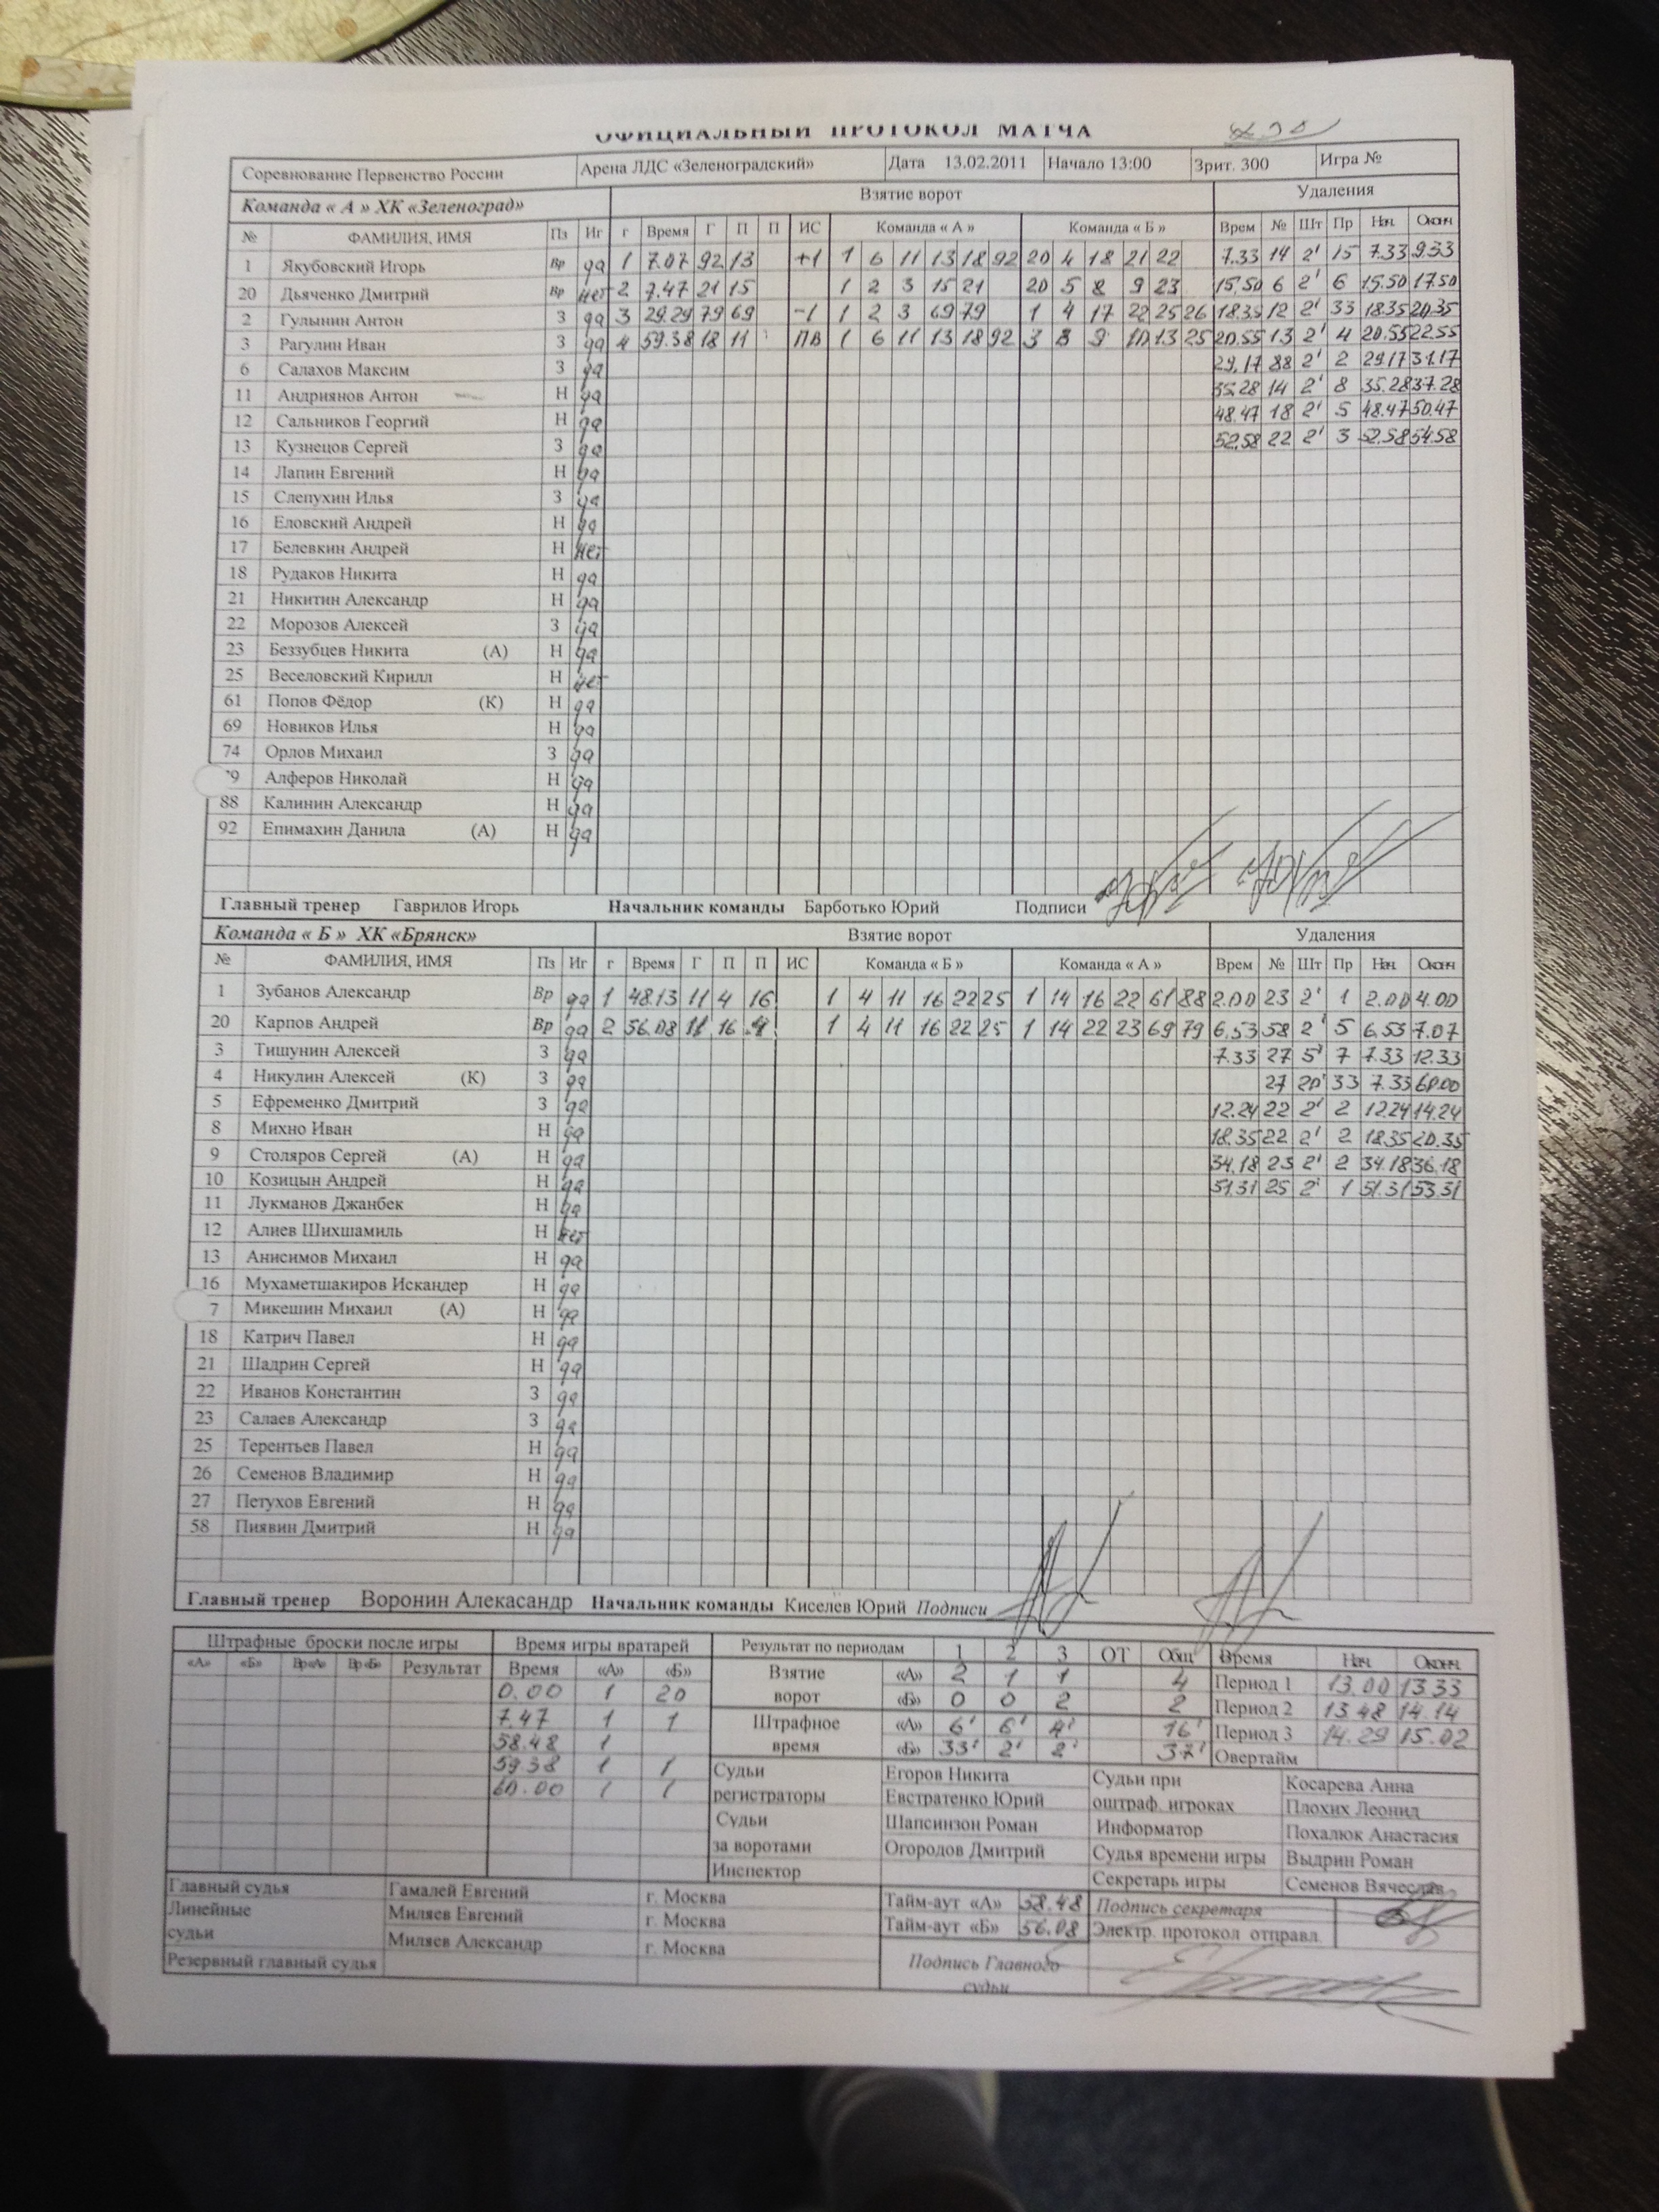 ОФИЦИАЛЬНЫЙ ПРОТОКОЛ МАТЧА
Соревнование Первенство России Арена ЛДС «Зеленоградский» Дата 13.02.2011 Начало 13:00 Зрит. 300 Игра №
Команда « А » ХК «Зеленоград» Взятие ворот Удаления
№ ФАМИЛИЯ, ИМЯ Пз Иг г Время Г П П ИС Команда « А » Команда « Б » Врем № Шт Пр Нач Оконч
1 Якубовский Игорь Вр да 1 7.07 92 13 +1 1 6 11 13 18 92 20 4 18 21 22 7.33 14 2' 15 7.33 9.33
20 Дьяченко Дмитрий Вр нет 2 7.47 21 15 1 2 3 15 21 20 5 8 9 23 15.50 6 2' 6 15.50 17.50
2 Гулынин Антон З да 3 29.29 79 69 -1 1 2 3 69 79 1 4 17 22 25 26 18.35 12 2' 33 18.35 20.35
3 Рагулин Иван З да 4 59.38 18 11 ПВ 1 6 11 13 18 92 3 8 9 10 13 25 20.55 13 2' 4 20.55 22.55
6 Салахов Максим З да 29.17 88 2' 2 29.17 31.17
11 Андриянов Антон Н да 35.28 14 2' 8 35.28 37.28
12 Сальников Георгий Н да 48.47 18 2' 5 48.47 50.47
13 Кузнецов Сергей З да 52.58 22 2' 3 52.58 54.58
14 Лапин Евгений Н да
15 Слепухин Илья З да
16 Еловский Андрей Н да
17 Белевкин Андрей Н нет
18 Рудаков Никита Н да
21 Никитин Александр Н да
22 Морозов Алексей З да
23 Беззубцев Никита (А) Н да
25 Веселовский Кирилл Н нет
61 Попов Фёдор (К) Н да
69 Новиков Илья Н да
74 Орлов Михаил З да
9 Алферов Николай Н да
88 Калинин Александр Н да
92 Епимахин Данила (А) Н да
Главный тренер Гаврилов Игорь Начальник команды Барботько Юрий Подписи
Команда « Б » ХК «Брянск» Взятие ворот Удаления
№ ФАМИЛИЯ, ИМЯ Пз Иг г Время Г П П ИС Команда « Б » Команда « А » Врем № Шт Пр Нач Оконч
1 Зубанов Александр Вр да 1 48.13 11 4 16 1 4 11 16 22 25 1 14 16 22 61 88 2.00 23 2' 1 2.00 4.00
20 Карпов Андрей Вр да 2 56.08 11 16 4 1 4 11 16 22 25 1 14 22 23 69 79 6.53 58 2' 5 6.53 7.07
3 Тишунин Алексей З да 7.33 27 5' 7 7.33 12.33
4 Никулин Алексей (К) З да 27 20' 33 7.33 60.00
5 Ефременко Дмитрий З да 12.24 22 2' 2 12.24 14.24
8 Михно Иван Н да 18.35 22 2' 2 18.35 20.35
9 Столяров Сергей (А) Н да 34.18 23 2' 2 34.18 36.18
10 Козицын Андрей Н да 51.31 25 2' 1 51.31 53.31
11 Лукманов Джанбек Н да
12 Алиев Шихшамиль Н нет
13 Анисимов Михаил Н да
16 Мухаметшакиров Искандер Н да
7 Микешин Михаил (А) Н да
18 Катрич Павел Н да
21 Шадрин Сергей Н да
22 Иванов Константин З да
23 Салаев Александр З да
25 Терентьев Павел Н да
26 Семенов Владимир Н да
27 Петухов Евгений Н да
58 Пиявин Дмитрий Н да
Главный тренер Воронин Алекасандр Начальник команды Киселев Юрий Подписи
Штрафные броски после игры Время игры вратарей Результат по периодам 1 2 3 ОТ Общ Время Нач. Оконч.
«А» «Б» Вр«А» Вр«Б» Результат Время «А» «Б» Взятие ворот «А» 2 1 1 4 Период 1 13.00 13.33
0.00 1 20 «Б» 0 0 2 2 Период 2 13.48 14.14
7.47 1 1 Штрафное время «А» 6' 6' 4' 16' Период 3 14.29 15.02
58.48 1 «Б» 33' 2' 2' 37' Овертайм
59.38 1 1 Судьи регистраторы Егоров Никита Судьи при оштраф. игроках Косарева Анна
60.00 1 1 Евстратенко Юрий Плохих Леонид
Судьи за воротами Шапсинзон Роман Информатор Похалюк Анастасия
Огородов Дмитрий Судья времени игры Выдрин Роман
Инспектор Секретарь игры Семенов Вячеслав
Главный судья Гамалей Евгений г. Москва Тайм-аут «А» 58.48 Подпись секретаря
Линейные судьи Миляев Евгений г. Москва Тайм-аут «Б» 56.08 Электр. протокол отправл.
Миляев Александр г. Москва Подпись Главного судьи
Резервный главный судья